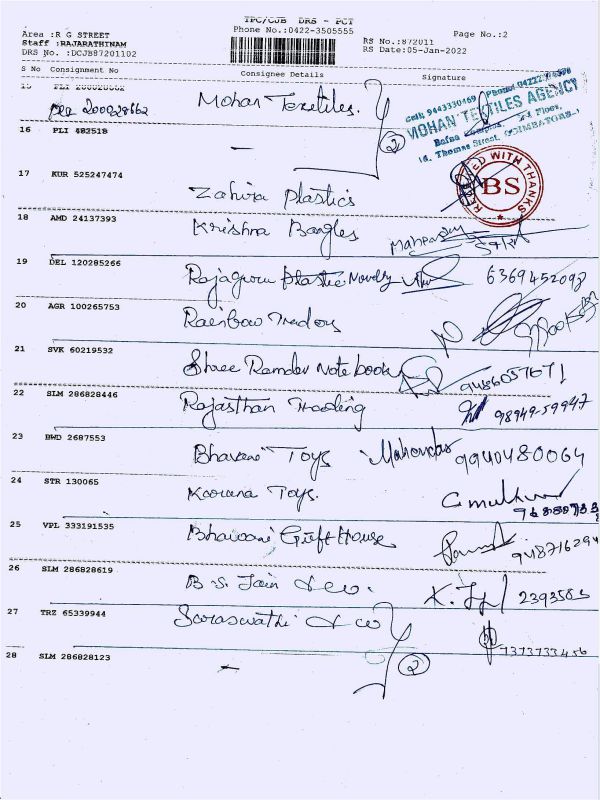 TPC/CJB DRS - PCT
Area :R G STREET Phone No.:0422-3505555 Page No.:2
Staff :RAJARATHINAM RS No.:872011
DRS No. :DCJB87201102 RS Date:05-Jan-2022
S No Consignment No Consignee Details Signature
15 PLI 200028662 Mohan Textiles.
200028662
Cell: 9443330469 Phone: 0422
MOHAN TEXTILES AGENCY
Bafna Complex, Floor,
16, Thomas Street, COIMBATORE-1
2
16 PLI 482518 -
17 KUR 525247474 Zahira Plastics
RECEIVED WITH THANKS
BS
18 AMD 24137393 Krishna Bangles
19 DEL 120285266 Rajaguru Plastic Novelty 6369452098
20 AGR 100265753 Rainbow Traders
21 SVK 60219532 Shree Ramdev Note book 9486057671
22 SLM 286828446 Rajasthan Trading 98949-59947
23 BWD 2687553 Bhavani Toys 9940480064
24 STR 130065 Toys.
25 VPL 333191535 Bhavani Gift House
26 SLM 286828619 B.S. Jain & co. 2393583
27 TRZ 65339944 Saraswathi & co 7373733456
28 SLM 286828123 - 2